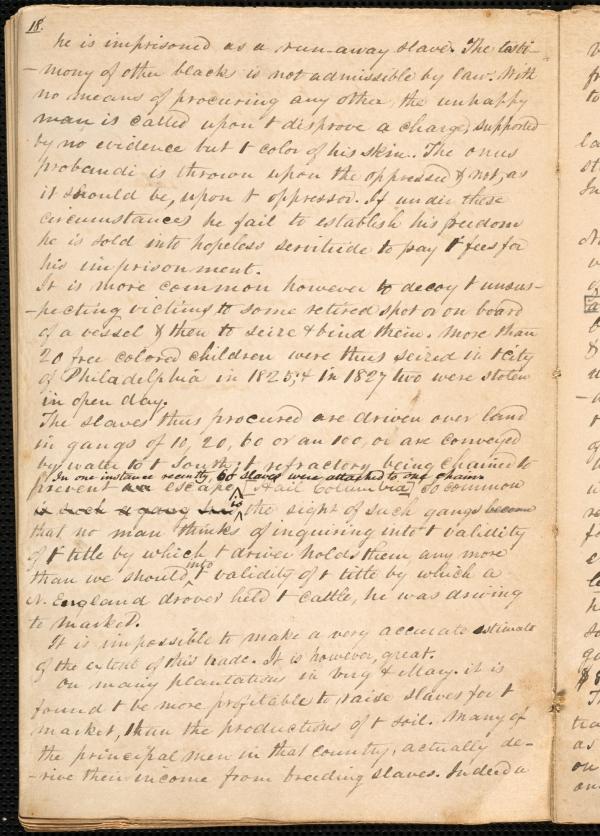 18.
he is imprisoned as a run-away slave. The testi-
-mony of other blacks is not admissible by law. With
no means of procuring any other, the unhappy
man is called upon t disprove a charge, supported
by no evidence but t color of his skin. The onus
probandi is thrown upon the oppressed & not, as
it should be, upon t oppressor. If under these
circumstances he fail to establish his freedom
he is sold into hopeless servitude to pay t fees for
his imprisonment.
It is more common however to decoy t unsus-
-pecting victims to some retired spot or on board
of a vessel & then to seize & bind them. More than
20 free colored children were thus seized in t city
of Philadelphia in 1825; & in 1827 two were stolen
in open day.
The slaves thus procured are driven over land
in gangs of 10, 20, 60 or an 100, or are conveyed
by water to t South; t refractory being chained to
In one instance recently, 60 slaves were attached to one chain.
prevent escape, Hail Columbia, So common
is the sight of such gangs
that no man thinks of inquiring into t validity
of t title by which t driver holds them, any more
than we should into t validity of t title by which a
N. England drover held t cattle, he was driving
to market.
It is impossible to make a very accurate estimate
of the extent of this trade. It is however, great.
On many plantations in Virg & Mary. it is
found t be more profitable to raise slaves for t
market, than the productions of t soil. Many of
the principal men in that country, actually de-
-rive their income from breeding slaves. Indeed a